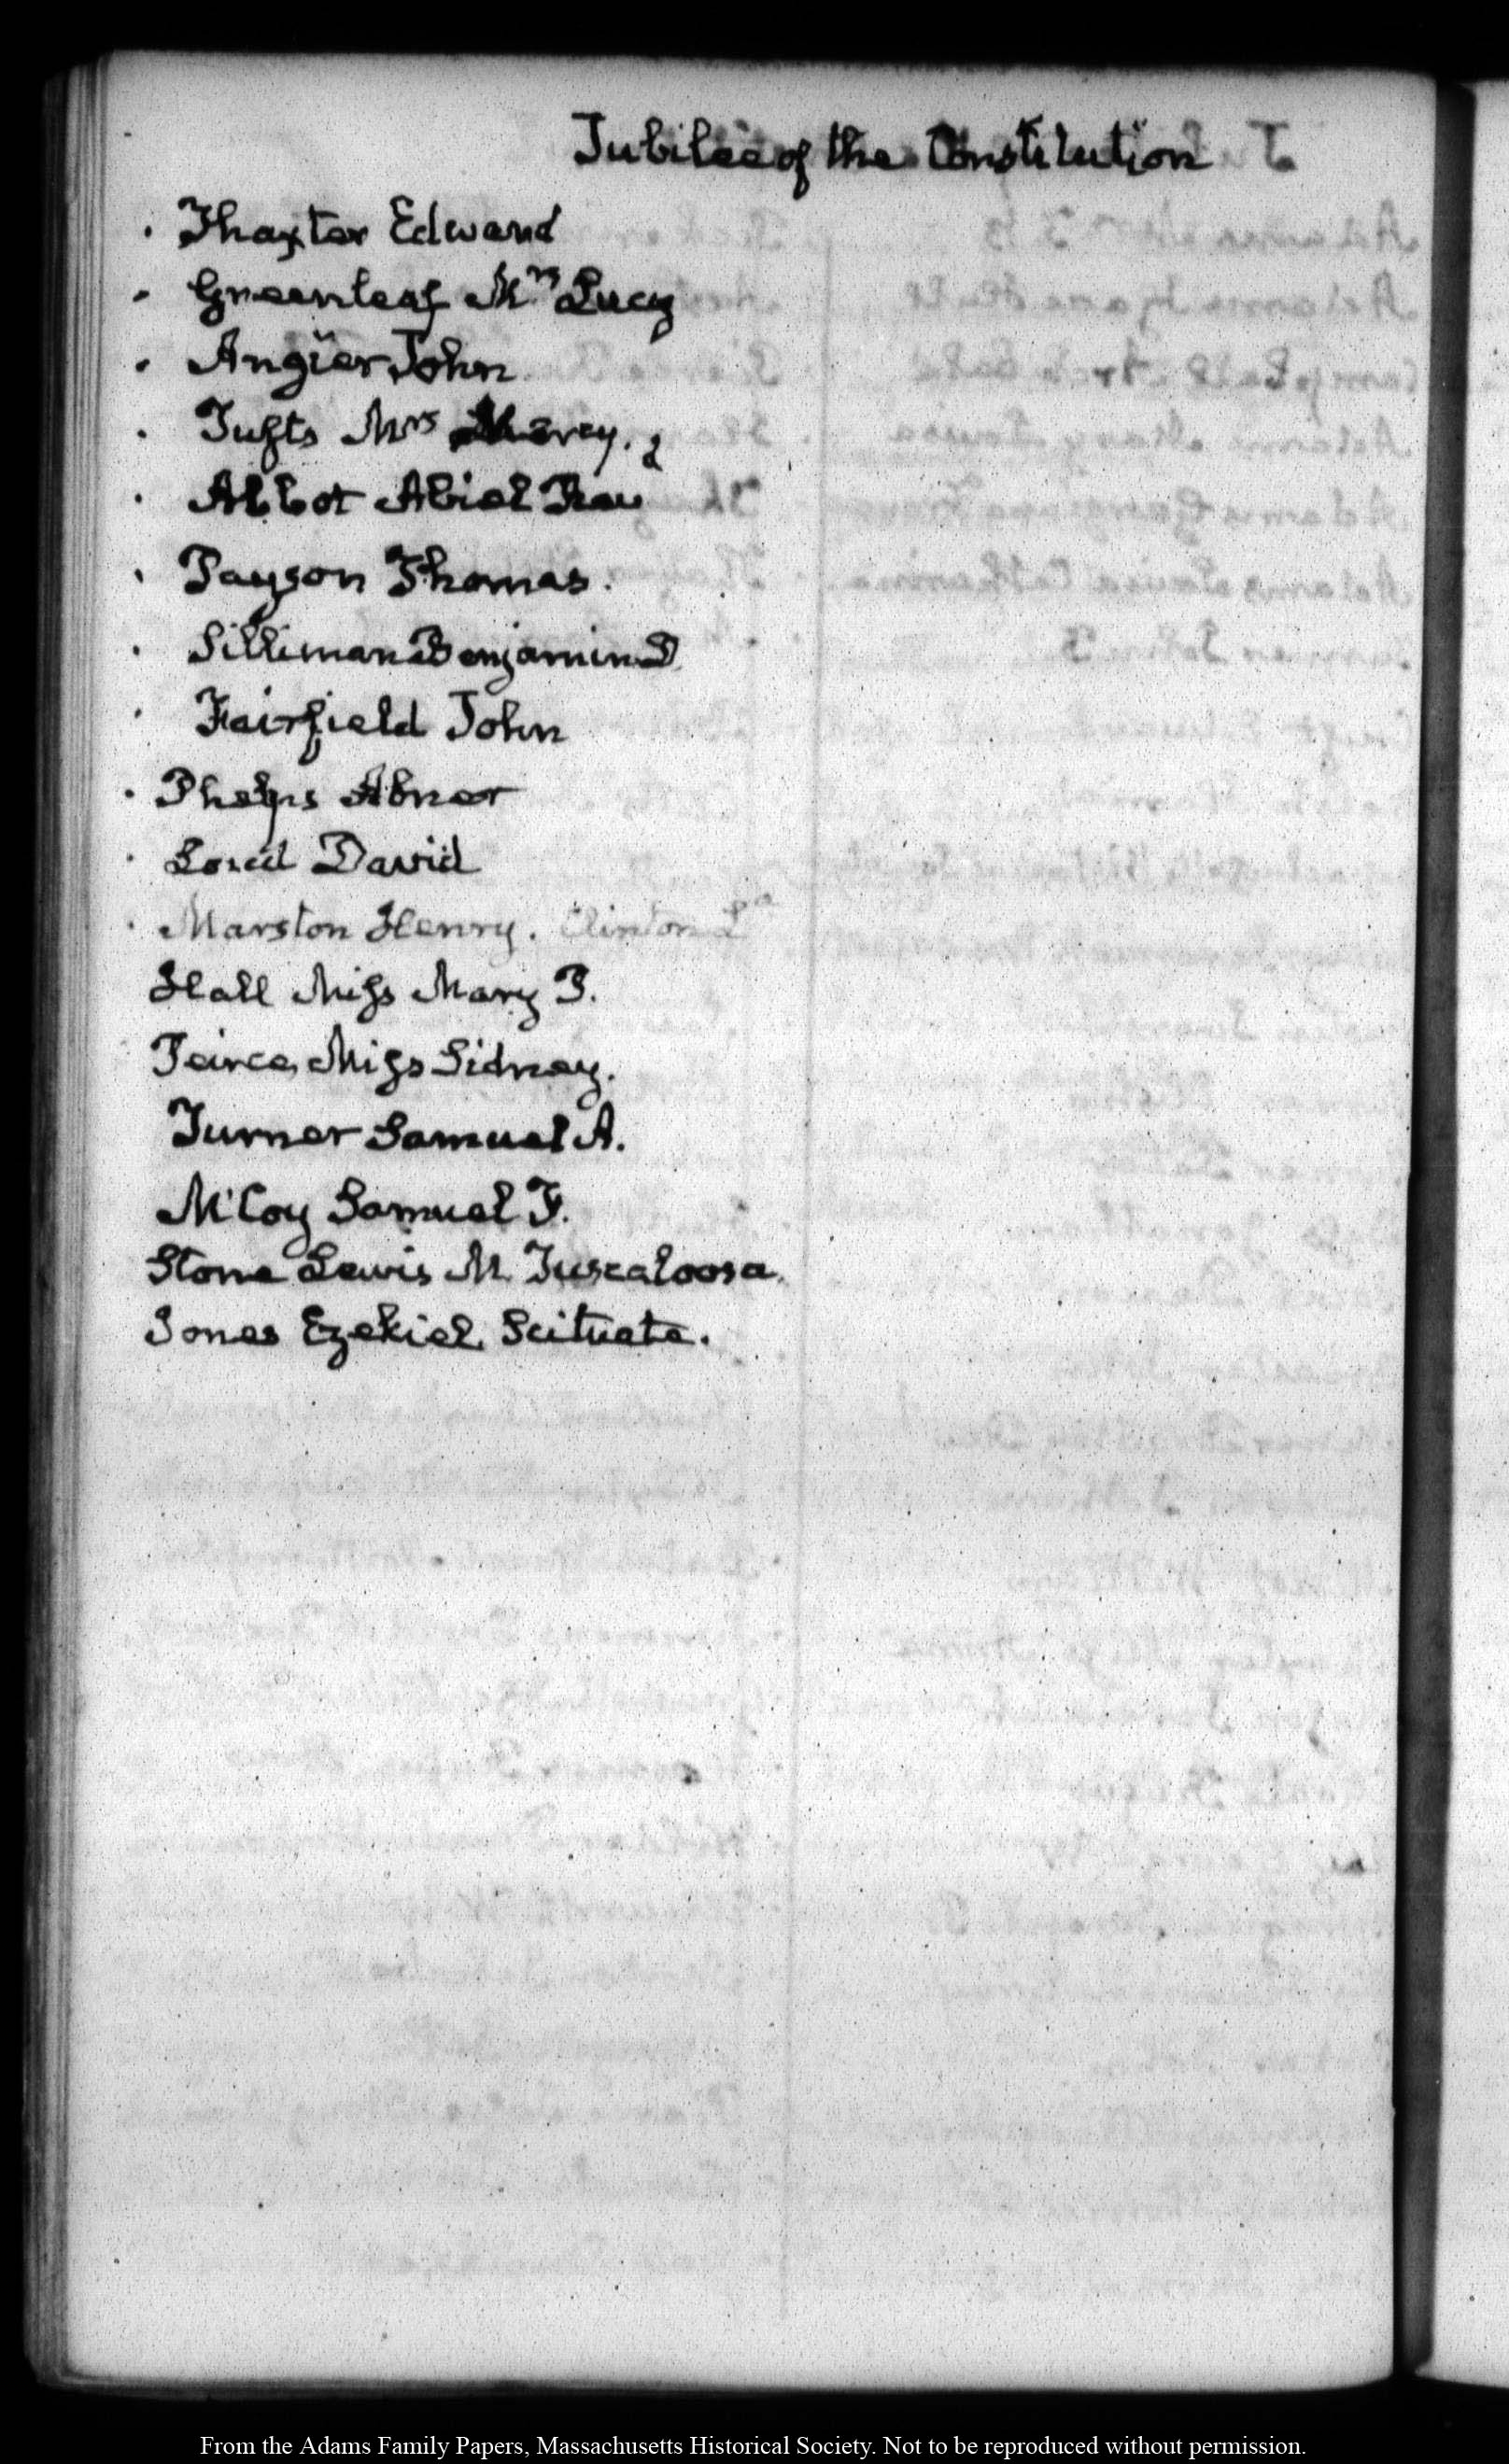 Jubilee of the Constitution
Thaxter Edward
Greenleaf Mrs Lucy
Angier John
Tufts Mrs Mercy. 2
Abbot Abiel Rev
Payson Thomas.
Silliman Benjamin D
Fairfield John
Phelps Abner
Loud David
Marston Henry. Clinton La
Hall Miss Mary P.
Peirce, Miss Sidney.
Turner Samuel A.
McCoy Samuel F.
Stone Lewis M. Tuscaloosa.
Jones Ezekiel Scituate.
From the Adams Family Papers, Massachusetts Historical Society. Not to be reproduced without permission.